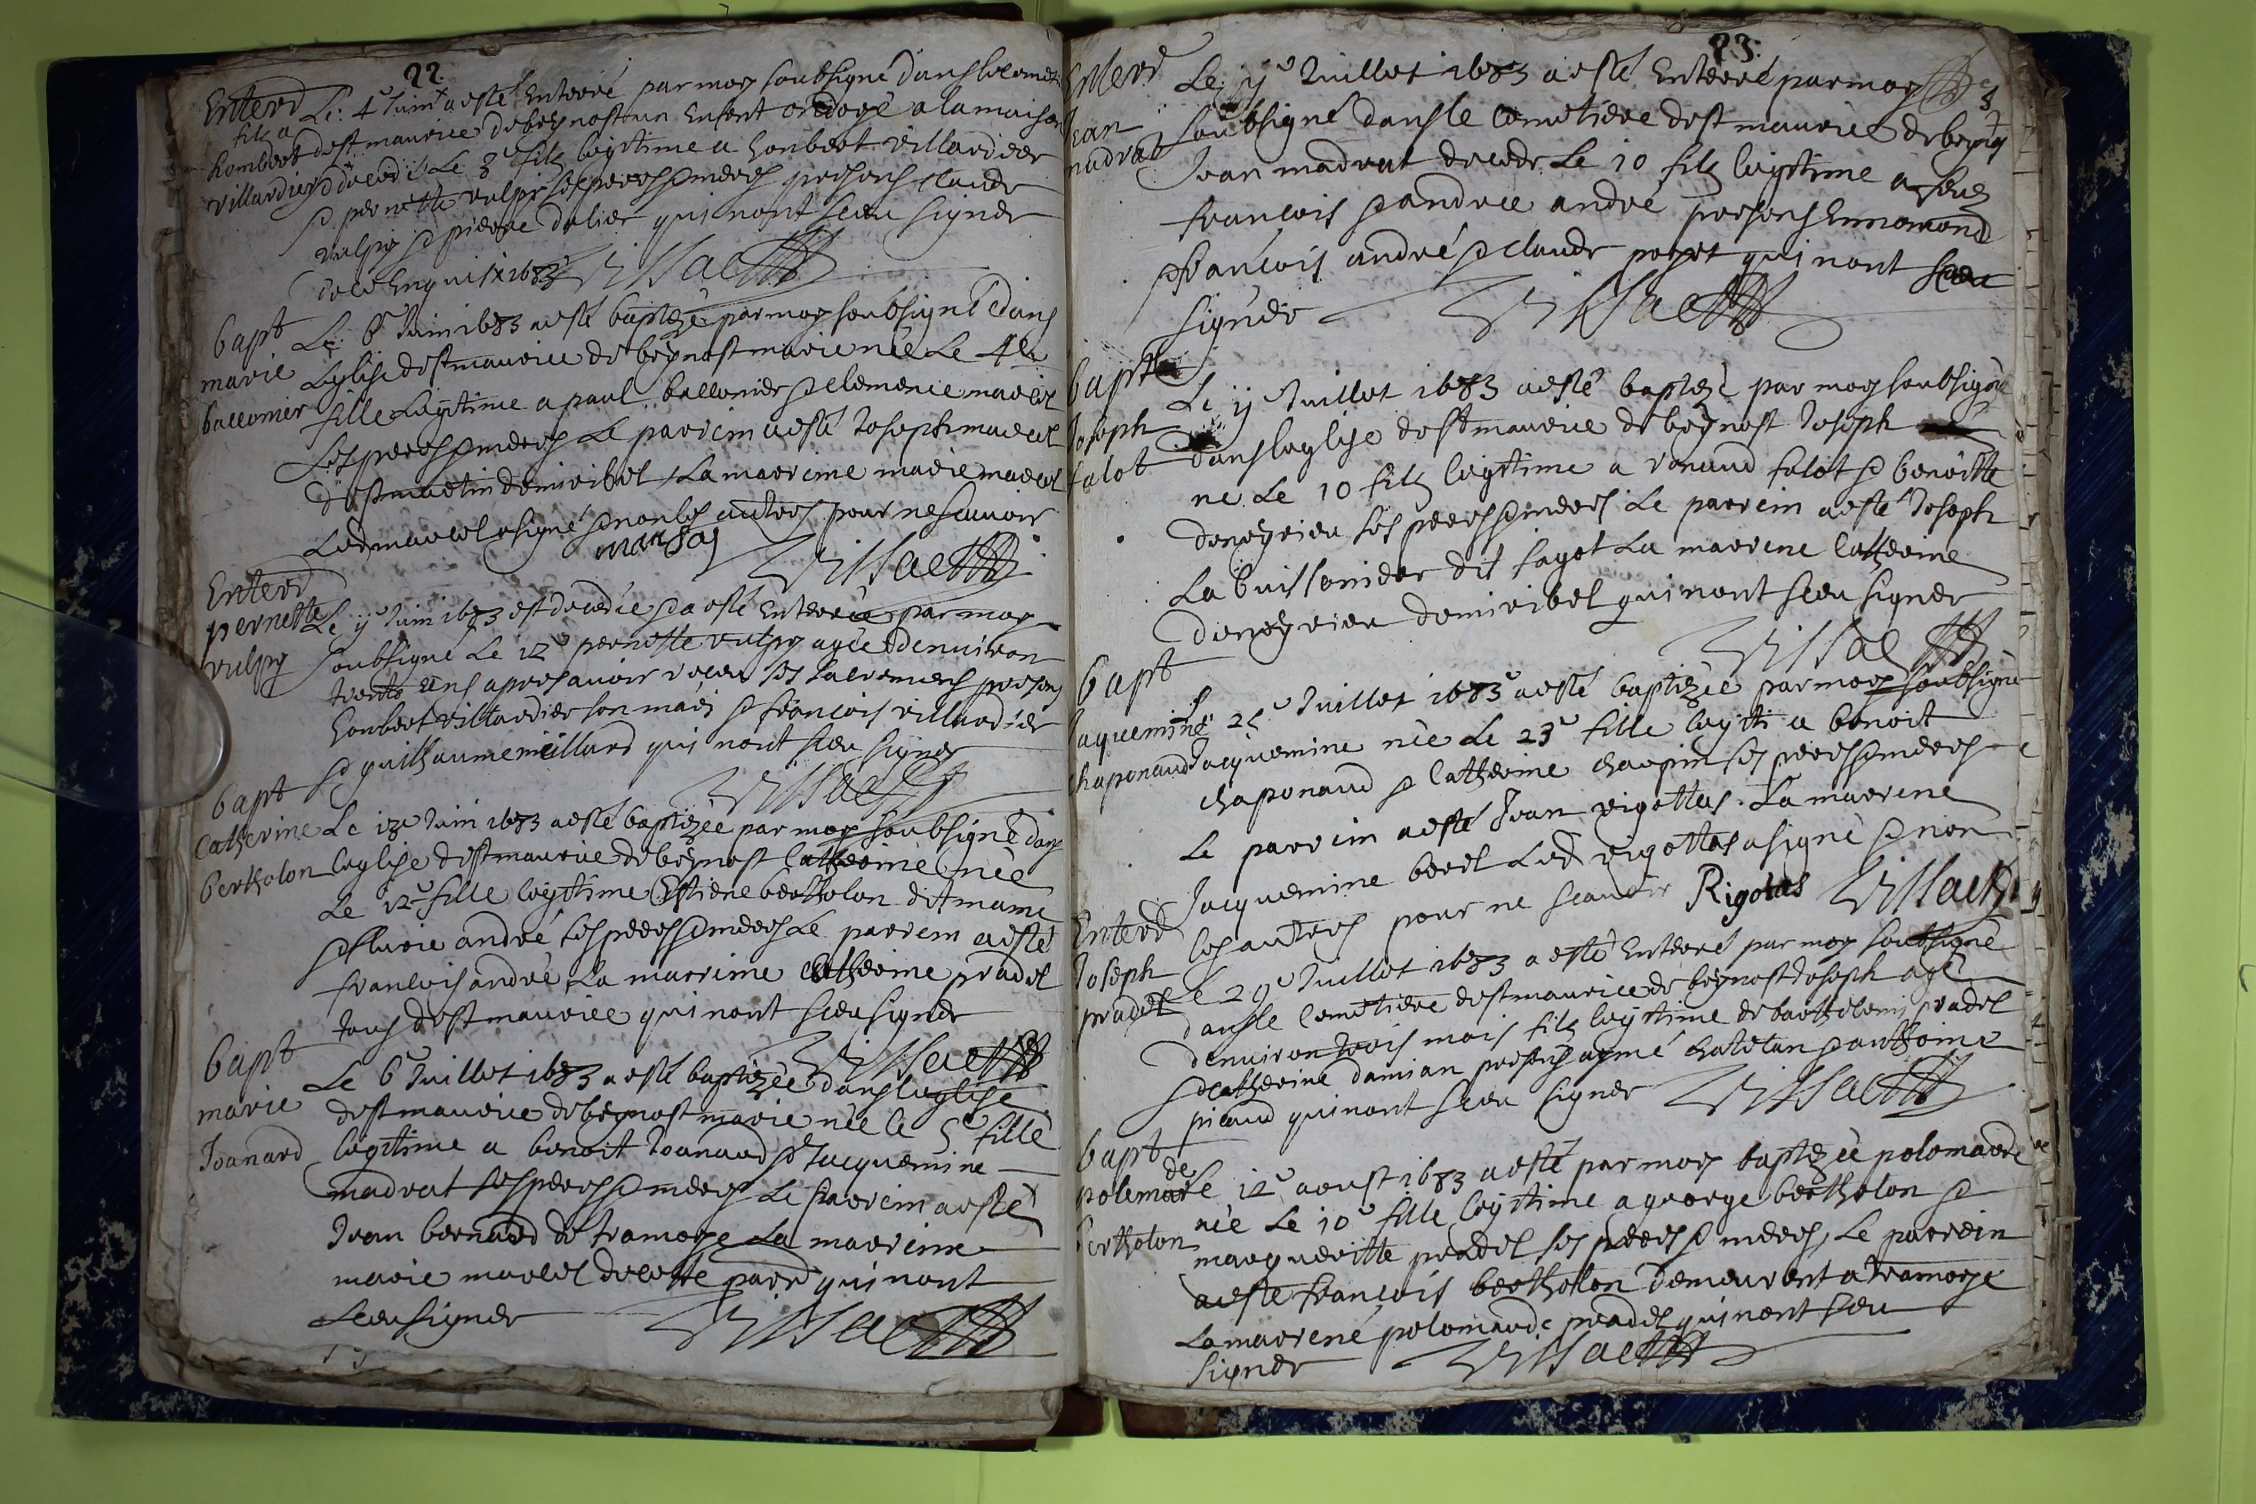 22
Enterr
filz a
hombert
villardier
Le 4e Juin a esté Enterré par moy soubsigné dans le
de st maurice de beynost un Enfant ondoyé a la maison
decedé Le 3e filz legitime a honbert villardier
& pernette vulpy ses peres & meres presens claude
vulpy & pierre qui n'ont sceu signer
Vissac
bapt
marie
ballomier
Le 6e Juin 1683 a esté baptizée par moy soubsigné dans
Leglise de st maurice de beynost marie née Le 4e
fille Legitime a paul ballomier & clemence marcel
Ses peres & meres Le parrein a esté Joseph marcel
de st martin de miribel La marreine marie marcel
Led marcel a signé & non les autres pour ne scavoir
marsal Vissac
Enterr
pernette
vulpy
Le 11 Juin 1683 est decedée & a esté Enterrée par moy
soubsigné Le 12e pernette vulpy agée denviron
trente ans apres avoir receu ses sacremens presens
honbert villardier son mari & françois villardier
& guillaume millard qui n'ont sceu signer
Vissac
bapt
Catherine
bertholon
Le 13e Juin 1683 a esté baptizée par moy soubsigné dans
leglise de st maurice de beynost Catherine née
Le 12e fille legitime Estiene bertholon dit mame
& claudie andré ses peres & meres Le parrein a esté
francois andre La marrime Catherine pradel
tous de st maurice qui n'ont sceu signer
Vissac
bapt
marie
Joanard
Le 6e Juillet 1683 a esté baptizée dans leglise
de st maurice de beynost marie née le 5e fille
legitime a benoit Joanard & Jacquemine
madrat ses peres & meres Le parrein a esté
Jean bernard de tramoye La marreine
marie marcel de cette parr qui n'ont
sceu signer Vissac
23
Enterr
Jean
madrat
Le 11e Juillet 1683 a esté Enterré par moy
soubsigné dans le cemetiere de st maurice de beynost
Jean madrat decedé Le 10 filz legitime a feu
françois & andrée andré presens Ennemond
& françois andré & claude poyet qui n'ont sceu
signer Vissac
bapt
Joseph
falot
Le 11e Juillet 1683 a esté baptizé par moy soubsigné
dans leglise de st maurice de beynost Joseph
né Le 10 filz legitime a renaud falot & benoitte
ses peres & meres Le parrein a esté Joseph
La buissonnier dit fagot La marrene Catherine
de miribel qui n'ont sceu signer
Vissac
bapt
Jaquemine
chaponaud
Le 25e Juillet 1683 a esté baptizée par moy soubsigné
Jacquemine née Le 23e fille legiti a benoit
chaponaud & Catherine chaopin ses peres & meres
Le parrein a esté Jean rigottas La marrene
Jacquemine borel Led rigottas a signé & non
les autres pour ne scavoir Rigotas Vissac
Enterr
Joseph
pradel
Le 29e Juillet 1683 a esté Enterré par moy soubsigné
dans le Cemetiere de st maurice de beynost Joseph agé
denviron trois mois filz legitime de barthelemy pradel
& Catherine damian presens aymé chatelan & anthoine
picaud qui n'ont sceu signer Vissac
bapt
polemarde
bertholon
Le 12e aoust 1683 a esté par moy baptizée polomarde
née Le 10e fille legitime a george bertholon &
margueritte pradel ses peres & meres, Le parrein
a esté françois bertholon demeurant a tramoye
La marrene polomarde pradel qui n'ont sceu
signer Vissac